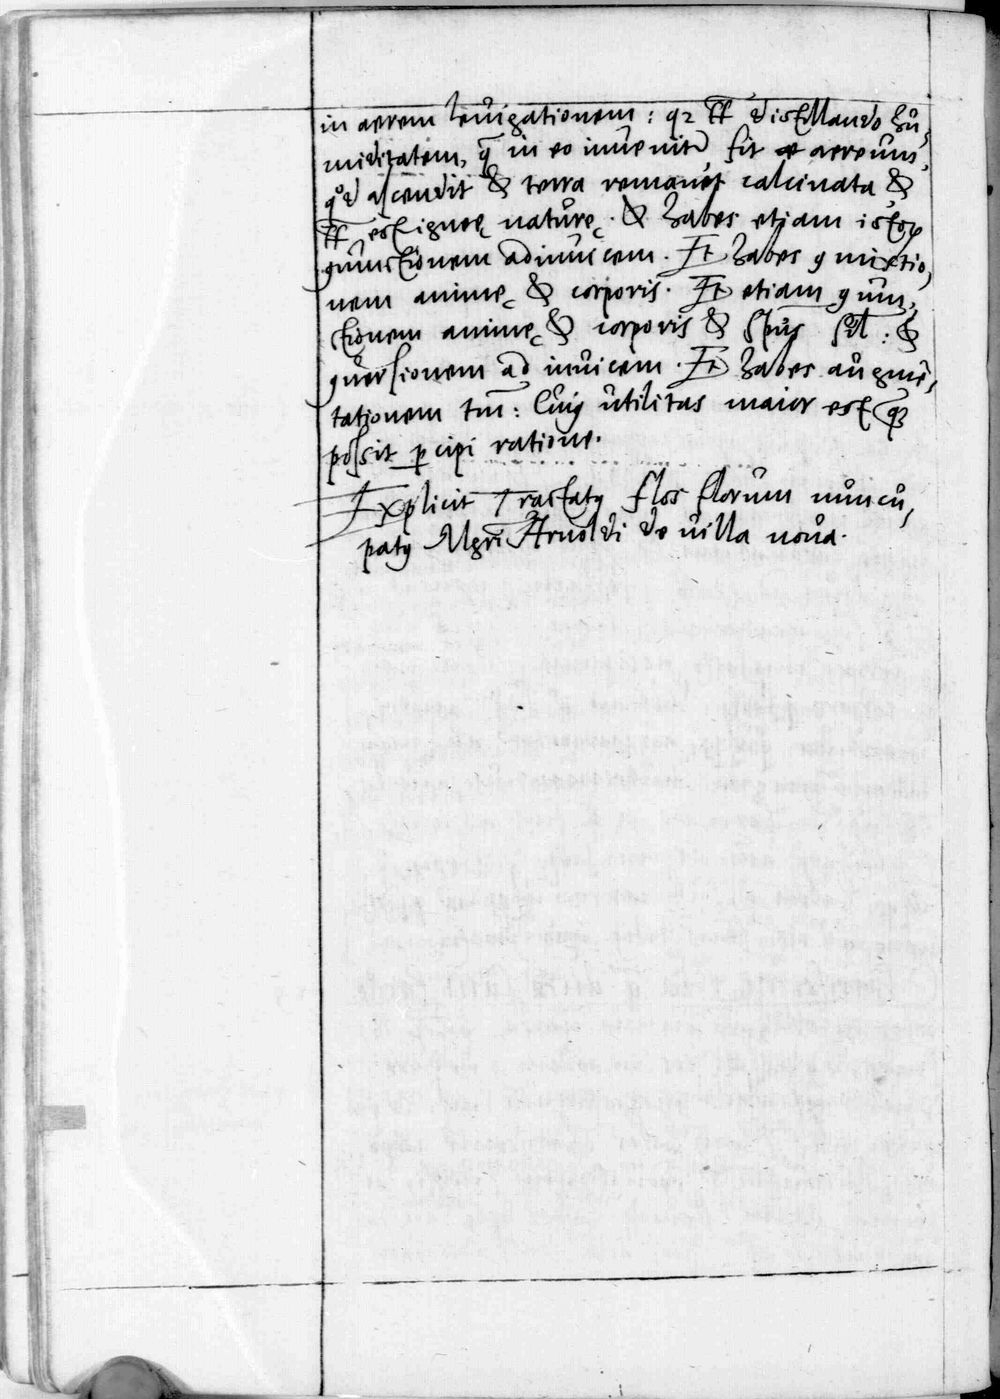 in aerem leuigationem: qꝛ ꝑꝑ distillando hu,
miditatem, q̄ in eo inuenit᷑ fit aereum,
qd ascendit & terra remanet calcinata &
est igneę naturę. & habes etiam istoꝝ
ꝯiunctionem adinuicem. Et habes ꝯmixtio,
nem animę & corporis. Et etiam ꝯiun,
ctionem animę & corporis & spūs sīl: &
ꝯuersionem ad inuicem. Et habes augmē,
tationem tm̄: Cuiꝰ utilitas maior est qꝫ
possit ꝑcipi ratione.
Explicit Tractatꝰ flos florum nuncu,
patꝰ Mgr̄i Arnoldi de uilla noua.